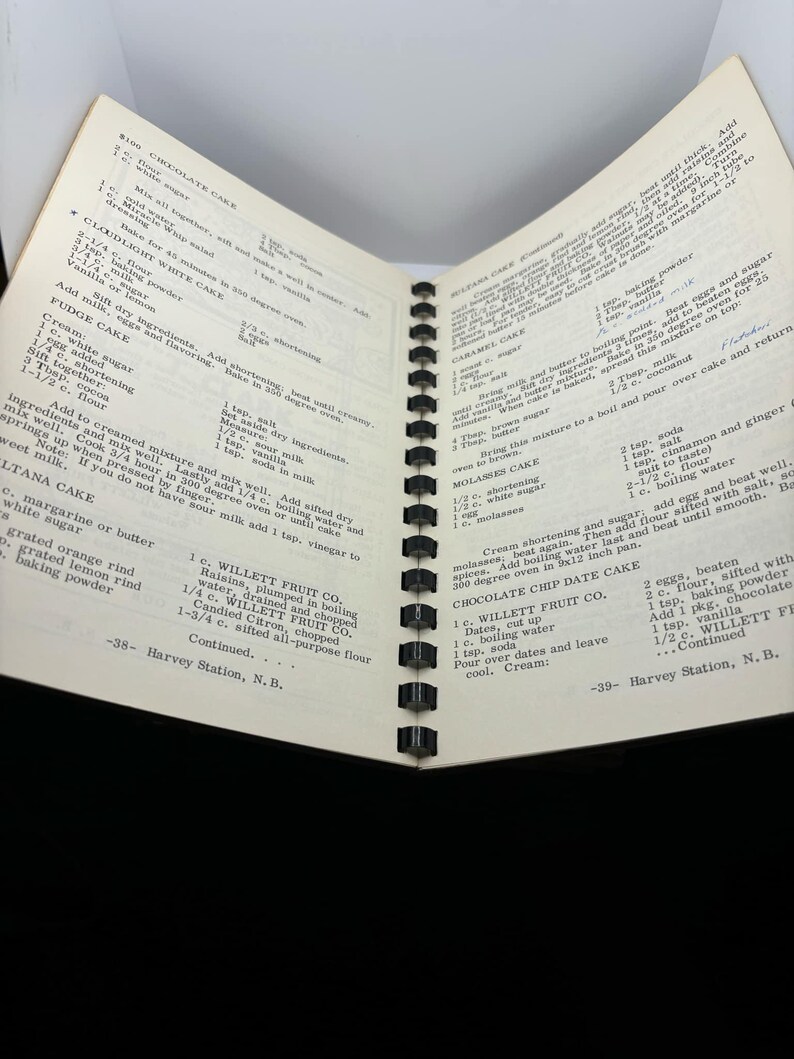 $100 CHOCOLATE CAKE
2 c. flour
1 c. white sugar
2 tsp. soda
4 Tbsp. cocoa
Salt
Mix all together, sift and make a well in center. Add:
1 c. cold water
1 c. Miracle Whip salad
dressing
1 tsp. vanilla
Bake for 45 minutes in 350 degree oven.
* CLOUDLIGHT WHITE CAKE
2-1/4 c. flour
3 tsp. baking powder
3/4 c. milk
1-1/4 c. sugar
Vanilla or lemon
2/3 c. shortening
2 eggs
Salt
Sift dry ingredients. Add shortening; beat until creamy.
Add milk, eggs and flavoring. Bake in 350 degree oven.
FUDGE CAKE
Cream:
1 c. white sugar
1 egg added
1/4 c. shortening
Sift together:
3 Tbsp. cocoa
1-1/2 c. flour
1 tsp. salt
Set aside dry ingredients.
Measure:
1/2 c. sour milk
1 tsp. vanilla
1 tsp. soda in milk
Add to creamed mixture and mix well. Add sifted dry
ingredients and mix well. Lastly add 1/4 c. boiling water and
mix well. Cook 3/4 hour in 300 degree oven or until cake
springs up when pressed by finger.
Note: If you do not have sour milk add 1 tsp. vinegar to
weet milk.
LTANA CAKE
c. margarine or butter
white sugar
grated orange rind
grated lemon rind
baking powder
1 c. WILLETT FRUIT CO.
Raisins, plumped in boiling
water, drained and chopped
1/4 c. WILLETT FRUIT CO.
Candied Citron, chopped
1-3/4 c. sifted all-purpose flour
Continued. . . .
-38- Harvey Station, N.B.
SULTANA CAKE (Continued)
Cream margarine, gradually add sugar, beat until thick. Add
well beaten eggs, orange rind and lemon rind, then add raisins and
citron. Add sifted flour and baking powder, 1/2 at a time. Combine
well (1/2 c. WILLETT FRUIT CO. Walnuts may be added). Turn
into pan lined with double thickness of paper and oiled. 9 inch tube
or loaf pan may be used. Bake in 300 degree oven for 1-1/2 to
2 hours. For tender, easy to cut crust brush with margarine or
softened butter 15 minutes before cake is done.
CARAMEL CAKE
1 scant c. sugar
2 eggs
1 c. flour
1/4 tsp. salt
1 tsp. baking powder
2 Tbsp. butter
1 tsp. vanilla
1/2 c. scalded milk
Bring milk and butter to boiling point. Beat eggs and sugar
until creamy. Sift dry ingredients 3 times, add to beaten eggs.
Add vanilla and butter mixture. Bake in 350 degree oven for 25
minutes. When cake is baked, spread this mixture on top:
4 Tbsp. brown sugar
3 Tbsp. butter
2 Tbsp. milk
1/2 c. cocoanut
Bring this mixture to a boil and pour over cake and return
oven to brown.
MOLASSES CAKE
1/2 c. shortening
1/2 c. white sugar
1 egg
1 c. molasses
2 tsp. soda
1 tsp. salt
1 tsp. cinnamon and ginger (
suit to taste)
2-1/2 c. flour
1 c. boiling water
Cream shortening and sugar; add egg and beat well.
molasses; beat again. Then add flour sifted with salt, so
spices. Add boiling water last and beat until smooth. Ba
300 degree oven in 9x12 inch pan.
CHOCOLATE CHIP DATE CAKE
1 c. WILLETT FRUIT CO.
Dates, cut up
1 c. boiling water
1 tsp. soda
Pour over dates and leave
cool. Cream:
2 eggs, beaten
2 c. flour, sifted with
1 tsp. baking powder
Add 1 pkg. chocolate
1 tsp. vanilla
1/2 c. WILLETT F
...Continued
-39- Harvey Station, N.B.